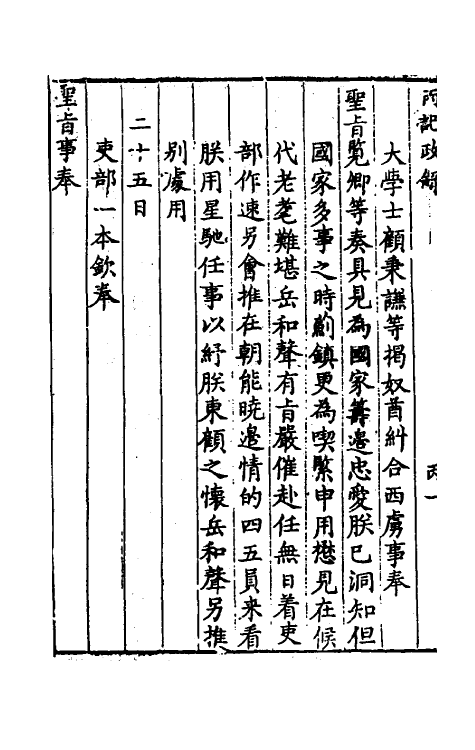 丙記政錄
大學士顧秉謙等揭奴酋糾合西虜事奉
聖旨覽卿等奏具見為國家籌邊忠愛朕已洞知但
國家多事之時薊鎮更為喫緊申用懋見在候
代老耄難堪岳和聲有旨嚴催赴任無日着吏
部作速另會推在朝能曉邊情的四五員來看
朕用星馳任事以紓朕東顧之懷岳和聲另推
別處用
二十五日
吏部一本欽奉
聖旨事奉